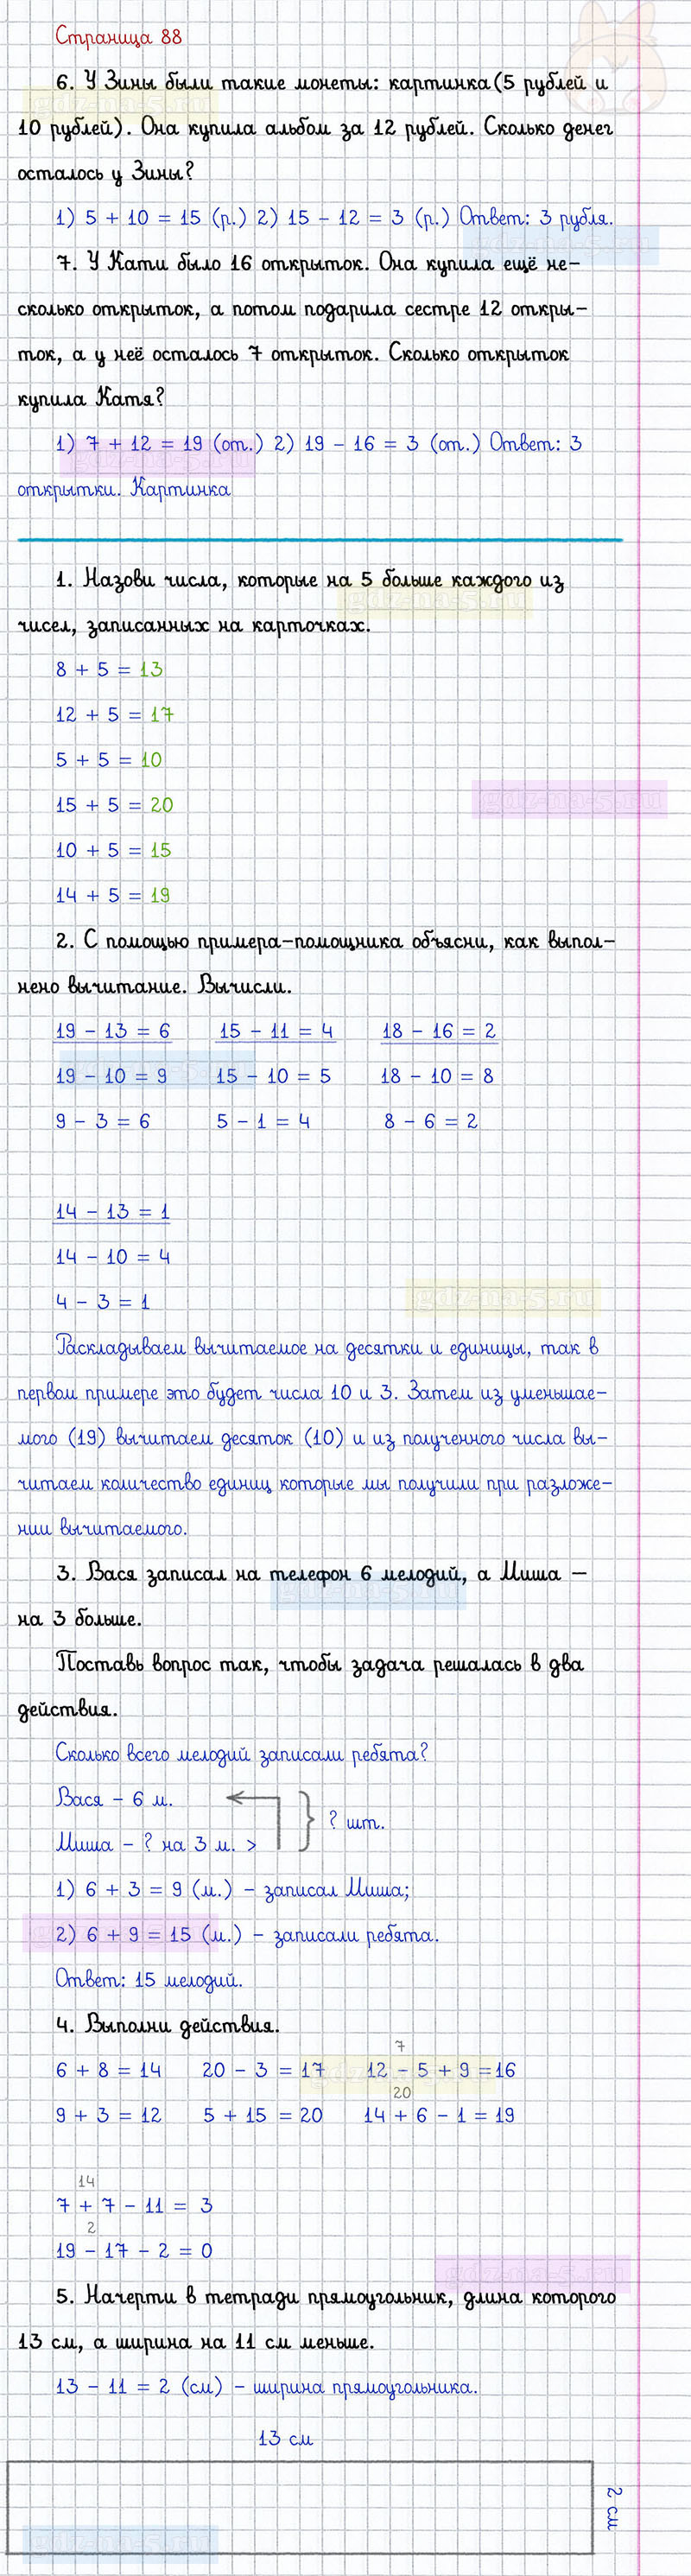 Страница 88
6. У Зины были такие монеты: картинка(5 рублей и
10 рублей). Она купила альбом за 12 рублей. Сколько денег
осталось у Зины?
1) 5 + 10 = 15 (р.) 2) 15 - 12 = 3 (р.) Ответ: 3 рубля.
7. У Кати было 16 открыток. Она купила ещё не-
сколько открыток, а потом подарила сестре 12 откры-
ток, а у неё осталось 7 открыток. Сколько открыток
купила Катя?
1) 7 + 12 = 19 (от.) 2) 19 - 16 = 3 (от.) Ответ: 3
открытки. Картинка
1. Назови числа, которые на 5 больше каждого из
чисел, записанных на карточках.
8 + 5 = 13
12 + 5 = 17
5 + 5 = 10
15 + 5 = 20
gdz-na-5.ru
10 + 5 = 15
14 + 5 = 19
2. С помощью примера-помощника объясни, как выпол-
нено вычитание. Вычисли.
19 - 13 = 6 15 - 11 = 4 18 - 16 = 2
19 - 10 = 9 15 - 10 = 5 18 - 10 = 8
9 - 3 = 6 5 - 1 = 4 8 - 6 = 2
14 - 13 = 1
14 - 10 = 4
4 - 3 = 1
gdz-na-5.ru
Раскладываем вычитаемое на десятки и единицы, так в
первом примере это будет числа 10 и 3. Затем из уменьшае-
мого (19) вычитаем десяток (10) и из полученного числа вы-
читаем количество единиц которые мы получили при разложе-
нии вычитаемого.
3. Вася записал на телефон 6 мелодий, а Миша -
на 3 больше.
Поставь вопрос так, чтобы задача решалась в два
действия.
Сколько всего мелодий записали ребята?
Вася - 6 м.
? шт.
Миша - ? на 3 м. >
1) 6 + 3 = 9 (м.) - записал Миша;
2) 6 + 9 = 15 (м.) - записали ребята.
Ответ: 15 мелодий.
4. Выполни действия.
7
6 + 8 = 14 20 - 3 = 17 12 - 5 + 9 =16
20
9 + 3 = 12 5 + 15 = 20 14 + 6 - 1 = 19
14
7 + 7 - 11 = 3
2
19 - 17 - 2 = 0
gdz-na-5.ru
5. Начерти в тетради прямоугольник, длина которого
13 см, а ширина на 11 см меньше.
13 - 11 = 2 (см) - ширина прямоугольника.
13 см
2 см
gdz-na-5.ru